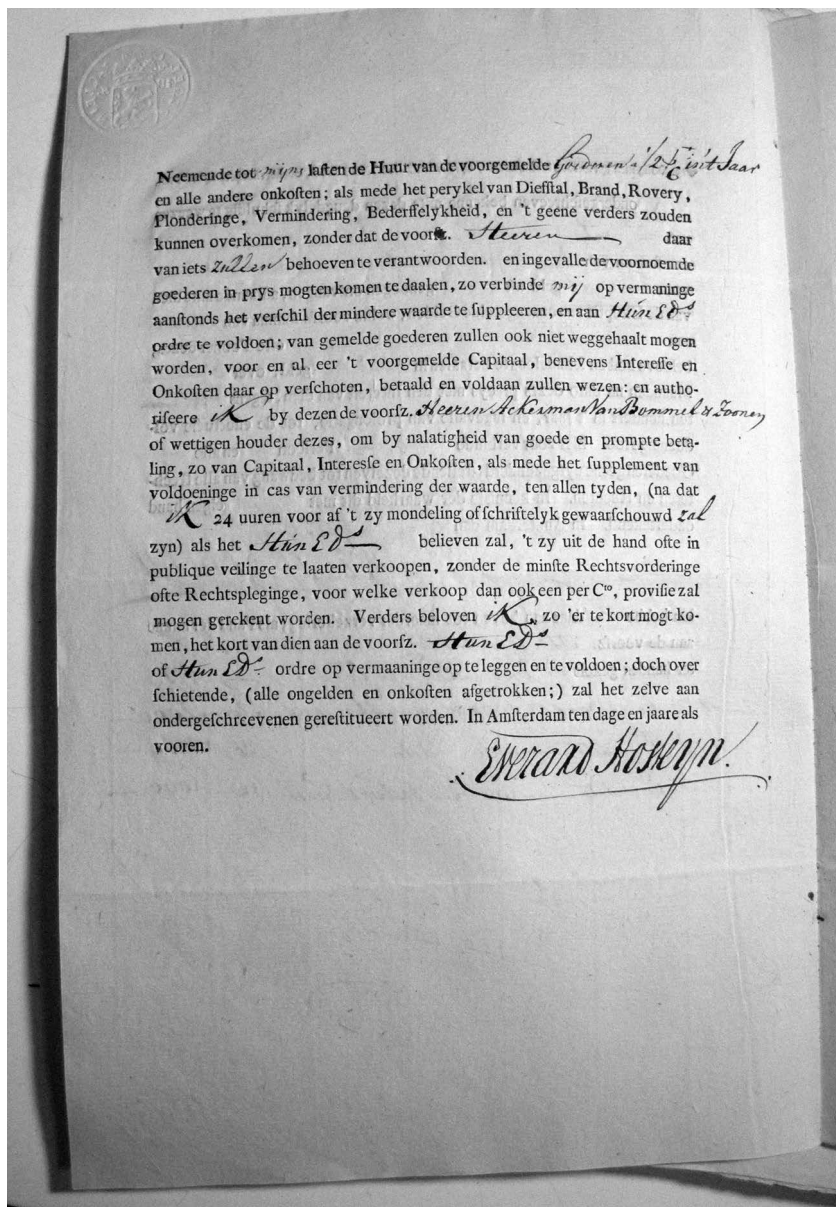 Neemende tot mijns laſten de Huur van de voorgemelde Goederen à 1/2 pC in't Jaar
en alle andere onkoſten; als mede het perykel van Diefſtal, Brand, Rovery,
Plonderinge, Vermindering, Bederffelykheid, en 't geene verders zouden
kunnen overkomen, zonder dat de voorſz. Heeren daar
van iets zullen behoeven te verantwoorden. en ingevalle de voornoemde
goederen in prys mogten komen te daalen, zo verbinde mij op vermaninge
aanſtonds het verſchil der mindere waarde te ſuppleeren, en aan Hún Eds
ordre te voldoen; van gemelde goederen zullen ook niet weggehaalt mogen
worden, voor en al eer 't voorgemelde Capitaal, benevens Intereſſe en
Onkoſten daar op verſchoten, betaald en voldaan zullen wezen: en autho-
riſeere ik by dezen de voorſz. Heeren Ackerman Van Bommel & Zoonen
of wettigen houder dezes, om by nalatigheid van goede en prompte beta-
ling, zo van Capitaal, Intereſſe en Onkoſten, als mede het ſupplement van
voldoeninge in cas van vermindering der waarde, ten allen tyden, (na dat
ik 24 uuren voor af 't zy mondeling of ſchriftelyk gewaarſchouwd zal
zyn) als het Hún Eds believen zal, 't zy uit de hand ofte in
publique veilinge te laaten verkoopen, zonder de minſte Rechtsvorderinge
ofte Rechtspleginge, voor welke verkoop dan ook een per Cto, proviſie zal
mogen gerekent worden. Verders beloven ik, zo 'er te kort mogt ko-
men, het kort van dien aan de voorſz. Hun Eds
of Hun Eds ordre op vermaaninge op te leggen en te voldoen; doch over
ſchietende, (alle ongelden en onkoſten afgetrokken;) zal het zelve aan
ondergeſchreevenen gereſtitueert worden. In Amſterdam ten dage en jaare als
vooren.
Everard Hosleyn.